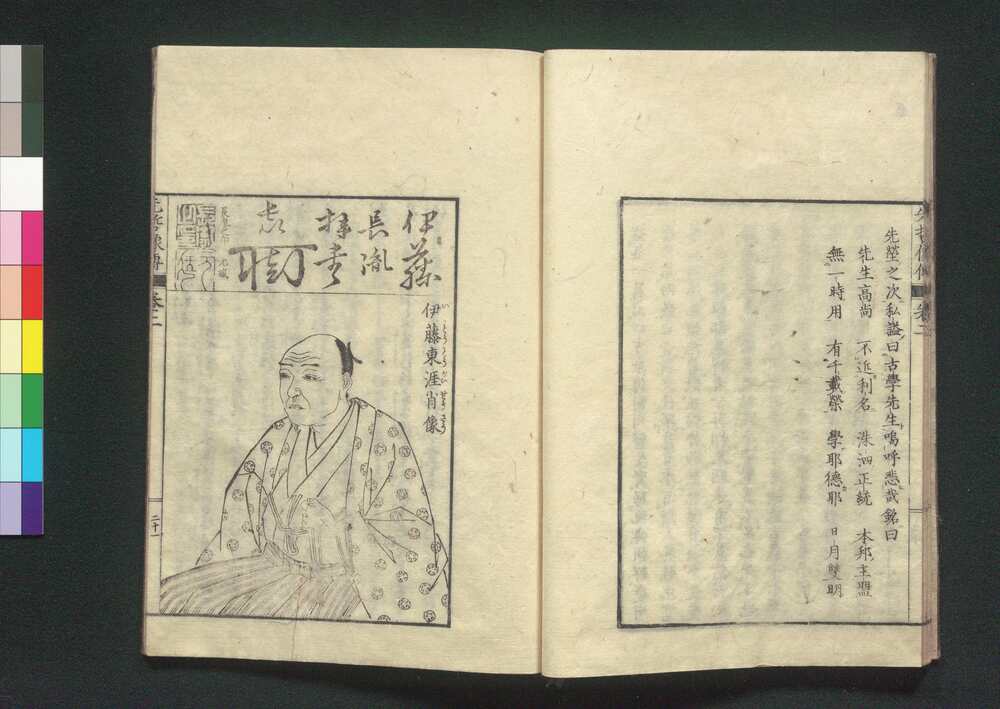 先塋之次私謚曰古學先生嗚呼悲哉銘曰
先生高尚　不近利名　洙泗正統　本邦主盟
無一時用　有千載榮　學耶德耶　日月雙明
伊藤
長胤
拜書
伊藤東涯肖像
いとうとうがいせうざう
二十一